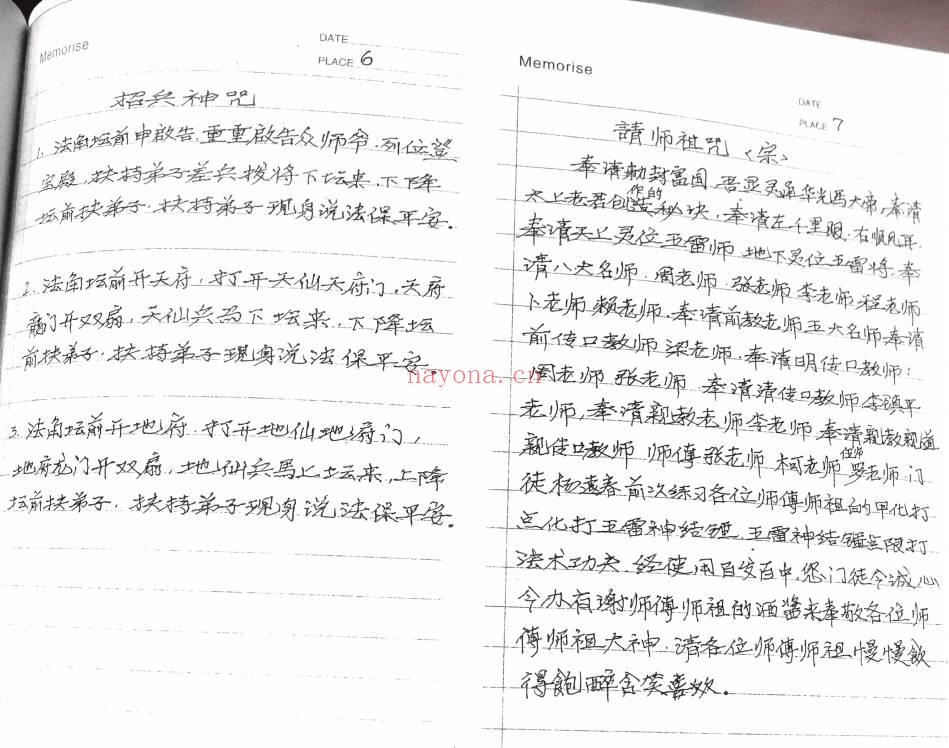 Memorise
DATE
PLACE 6
招兵神咒
1. 法角坛前申啟告，重重啟告众师爷，列位
宝殿，扶持弟子差兵拨将下坛来，下降
坛前扶弟子，扶持弟子现身说法保平安。
2. 法角坛前开天府，打开天仙天府门，天府
龍门开双扇，天仙兵马下坛来，下降坛
前扶弟子，扶持弟子现身说法保平安。
3. 法角坛前开地府，打开地仙地府门，
地府龙门开双扇，地仙兵馬上坛来，上降
坛前扶弟子，扶持弟子现身说法保平安。
Memorise
DATE
PLACE 7
請师祖咒〈宗〉
奉请勅封雷国，吾显灵通华光马大帝，奉请
太上老君创造作的秘诀，奉请左千里眼，右顺风耳，
奉请天上灵位五雷师，地下灵位五雷将，奉
请八大名师，周老师，张老师李老师，程老师
卜老师，赖老师，奉请前教老师五大名师，奉请
前传口教师梁老师，奉请明传口教师：
周老师张老师，奉请清传口教师李鎮平
老师，奉请親教老师李老师，奉请親教親
親传口教师师傅张老师柯老师罗老师，门
徒杨遠春前次练习各位师傅师祖的甲化打
点化打五雷神结锤，五雷神结锤无限打
法术功夫，经使用百发百中，您门徒今诚心
今办有谢师傅师祖的酒来奉敬各位师
傅师祖大神，请各位师傅师祖慢慢飲
得飽醉含笑喜欢。
nayona.cn